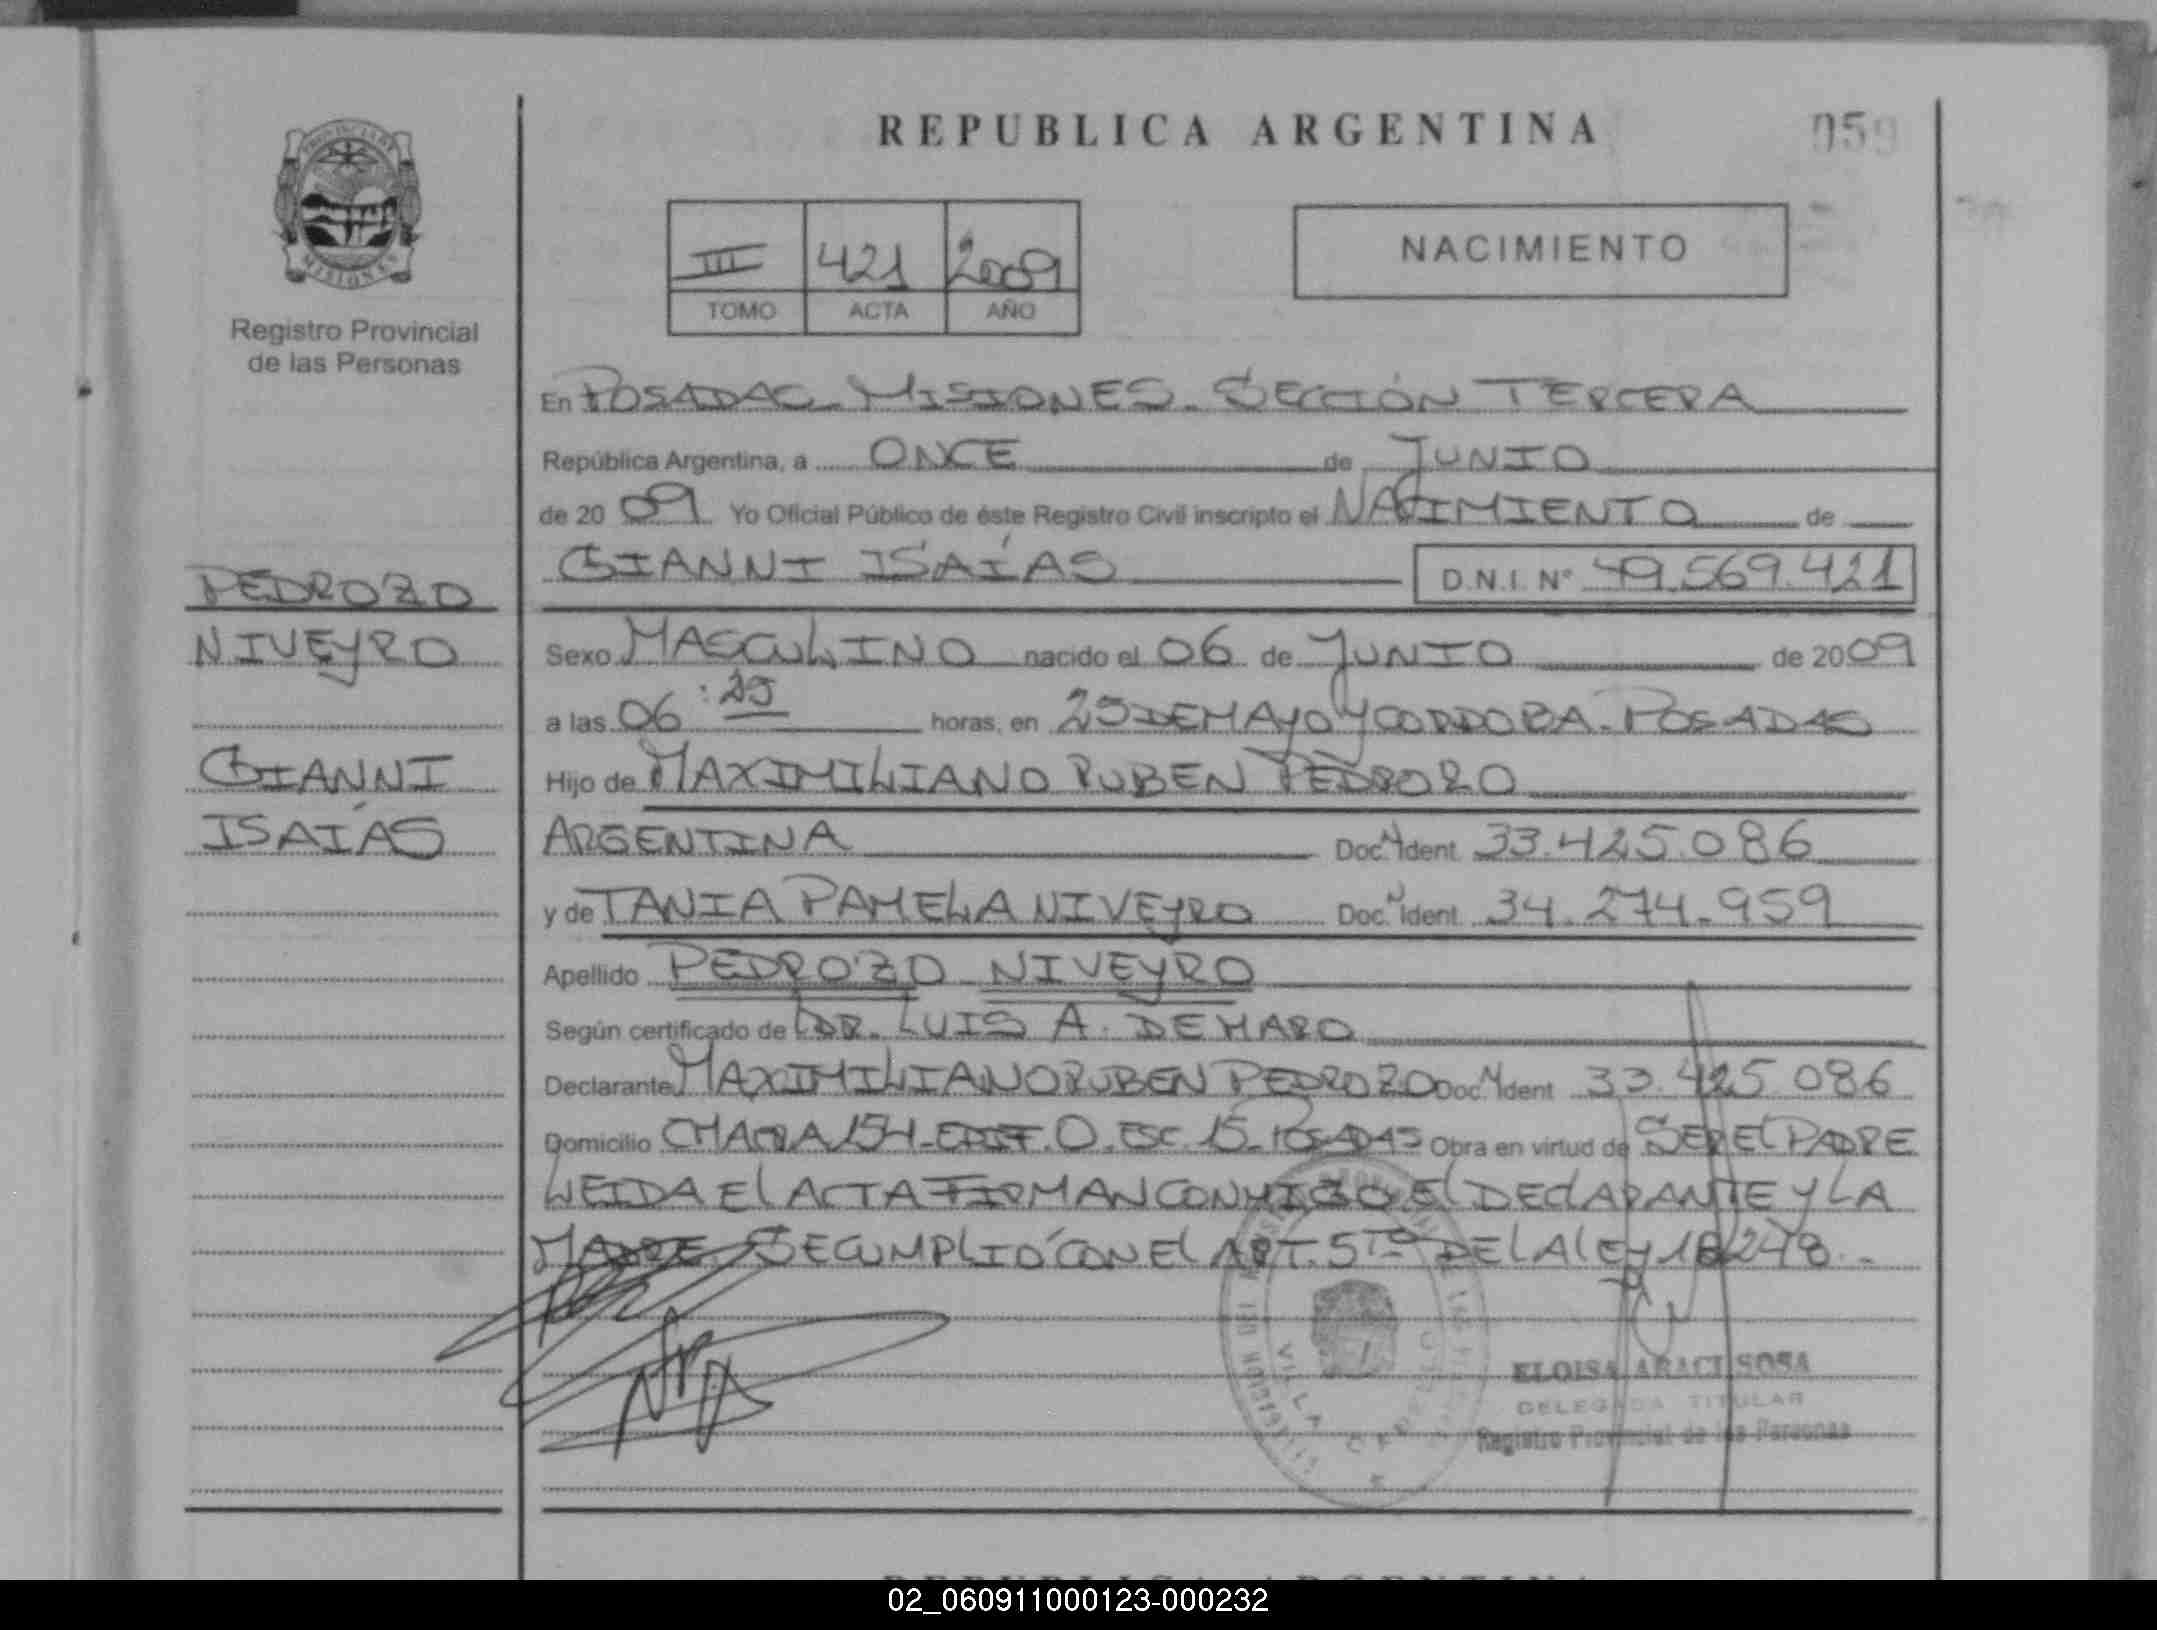 REPUBLICA ARGENTINA
059
PROVINCIA DE MISIONES
Registro Provincial
de las Personas
III 421 2009
TOMO ACTA AÑO
NACIMIENTO
En POSADAS - MISIONES - SECCIÓN TERCERA
República Argentina, a ONCE de JUNIO
de 20 09 Yo Oficial Público de éste Registro Civil inscripto el NACIMIENTO de
GIANNI ISAÍAS D.N.I. Nº 49.569.421
PEDROZO
NIVEYRO
GIANNI
ISAÍAS
Sexo MASCULINO nacido el 06 de JUNIO de 20 09
a las 06:25 horas, en 25 DE MAYO Y CORDOBA - POSADAS
Hijo de MAXIMILIANO RUBEN PEDROZO
ARGENTINA Doc. N Ident. 33.425.086
y de TANIA PAMELA NIVEYRO Doc. N Ident. 34.274.959
Apellido PEDROZO NIVEYRO
Según certificado de DR. LUIS A. DEMARO
Declarante MAXIMILIANO RUBEN PEDROZO Doc. N Ident 33.425.086
Domicilio CHACRA 154 - EDIF. O. ESC. 15 - POSADAS Obra en virtud de SER EL PADRE
LEIDA El ACTA FIRMAN CONMIGO El DEClARANTE Y LA
MADRE SE CUMPLIÓ CON El ART. 5TO DE lA lEY 18248.-
ELOISA ARACI SOSA
DELEGADA TITULAR
Registro Provincial de las Personas
VILLA CABELLO
REPUBLICA ARGENTINA
02_060911000123-000232